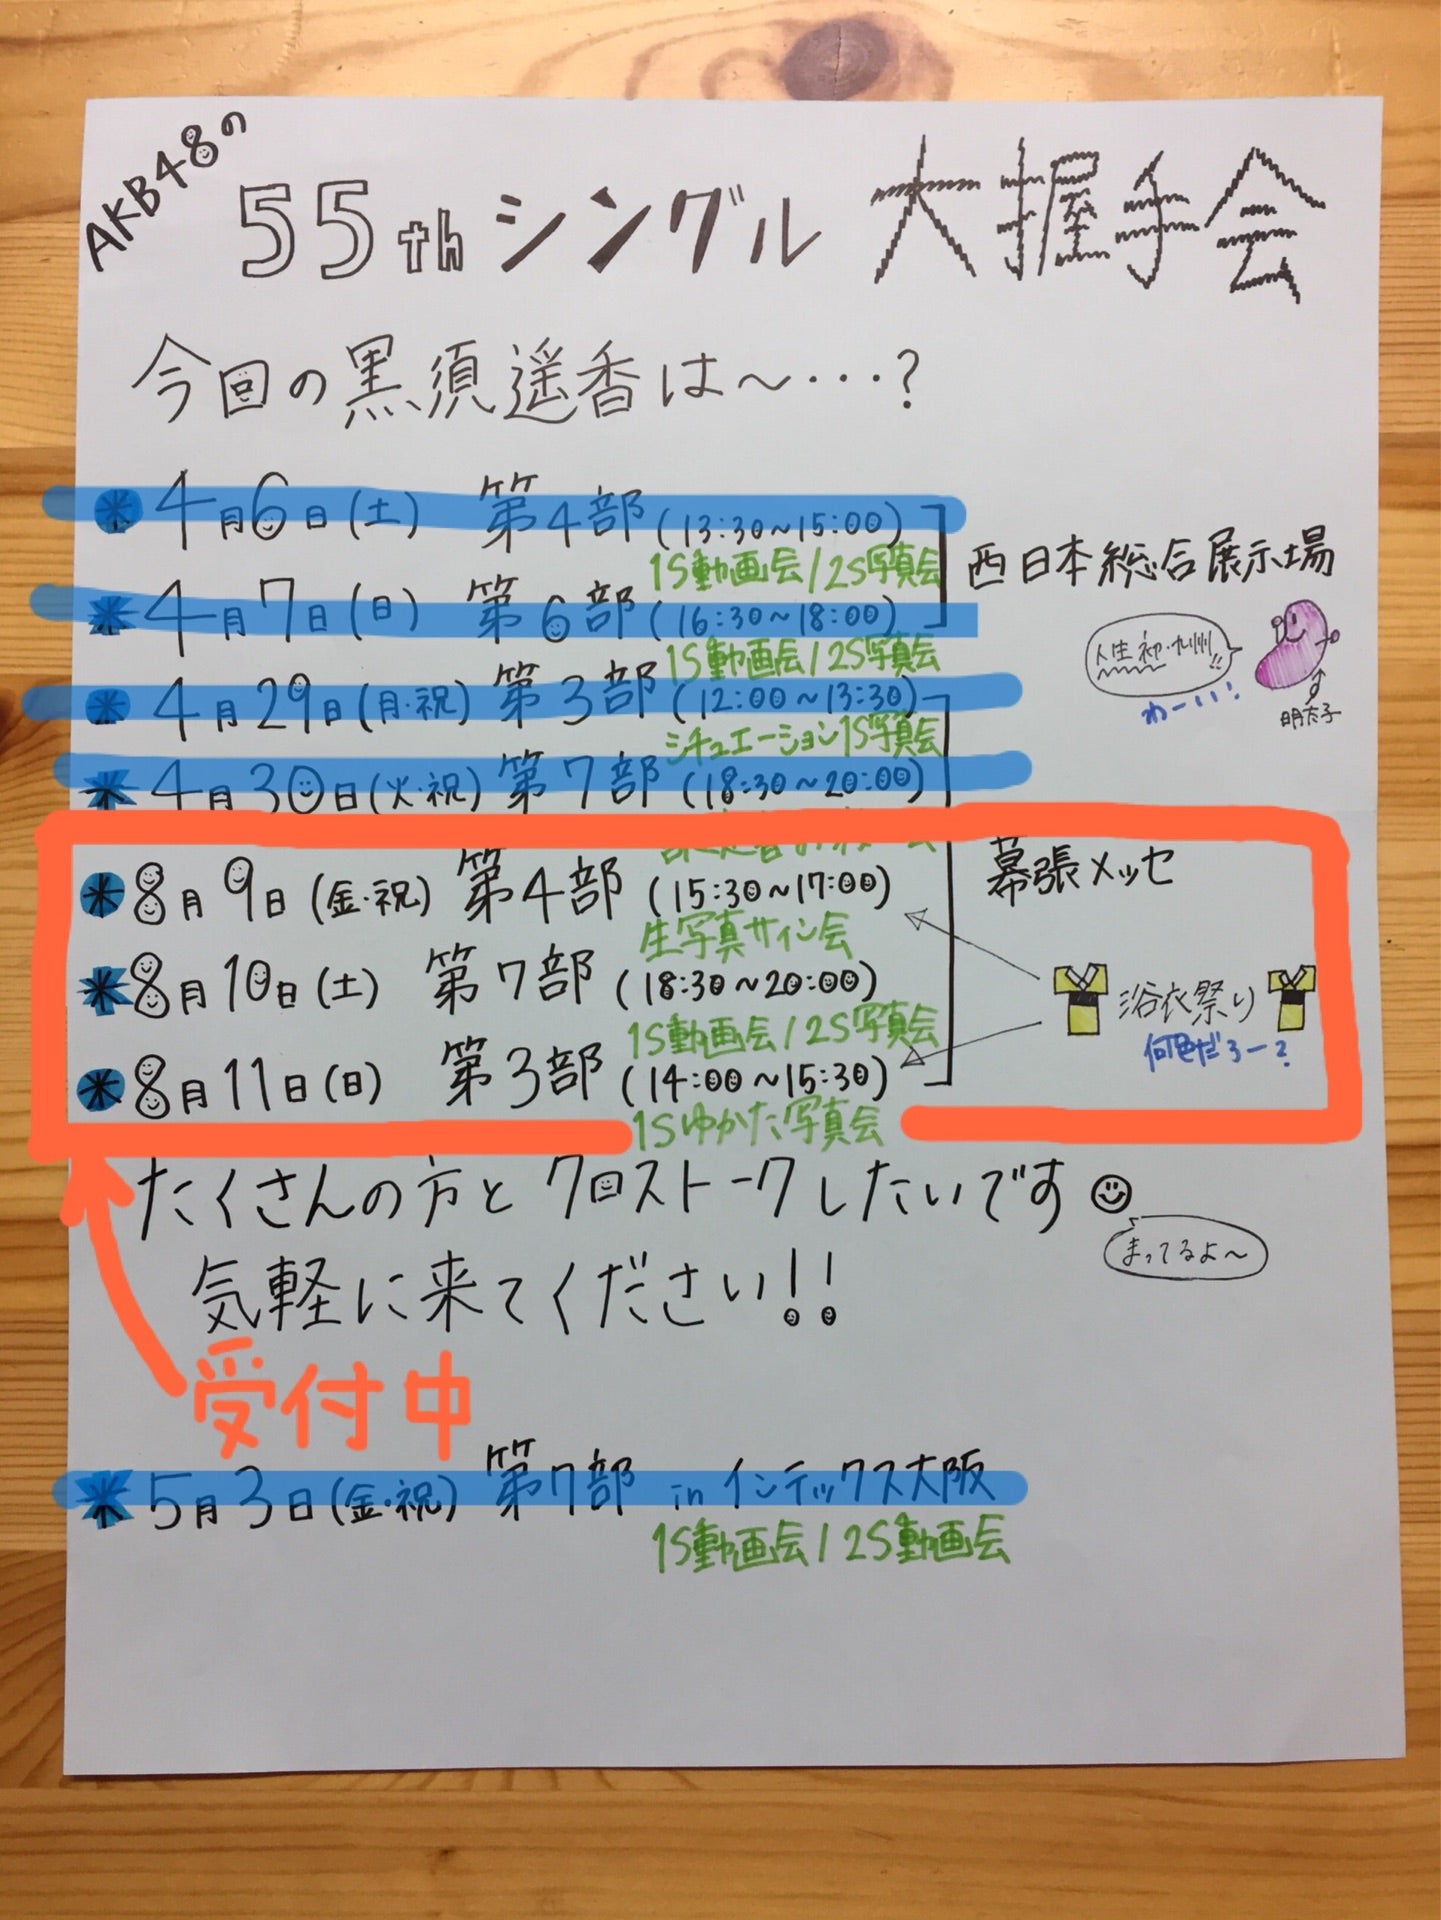 AKB48の
55thシングル 大握手会
今回の黒須遥香は〜・・・?
4月6日(土) 第4部(13:30〜15:00)
1S動画会/2S写真会
西日本総合展示場
4月7日(日) 第6部(16:30〜18:00)
1S動画会/2S写真会
人生初・九州!!
わーい!
明太子
4月29日(月・祝) 第3部(12:00〜13:30)
シチュエーション1S写真会
4月30日(火・祝) 第7部(18:30〜20:00)
8月9日(金・祝) 第4部(15:30〜17:00)
生写真サイン会
幕張メッセ
8月10日(土) 第7部(18:30〜20:00)
1S動画会/2S写真会
浴衣祭り
何色だろー?
8月11日(日) 第3部(14:00〜15:30)
1Sゆかた写真会
たくさんの方とクロストークしたいです
まってるよ〜
気軽に来てください!!
受付中
5月3日(金・祝) 第7部 in インテックス大阪
1S動画会/2S動画会